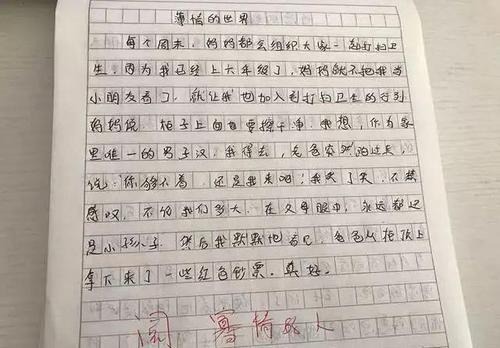 薄情的世界
每个周末，妈妈都会组织大家一起打扫卫
生，因为我已经上六年级了，妈妈就不把我当
小朋友看了，就让我也加入到打扫卫生的行列
妈妈说：柜子上面要擦干净，我想，作为家
里唯一的男子汉，我得去，爸爸突然跑过来，
说：你够不着，还是我来吧！我笑了笑，不禁
感叹，不管我们多大，在父母眼中，永远都还
是小孩子。然后我默默地看见，爸爸从柜顶上
拿下来了一些红色钞票。真好。
阅 情 人